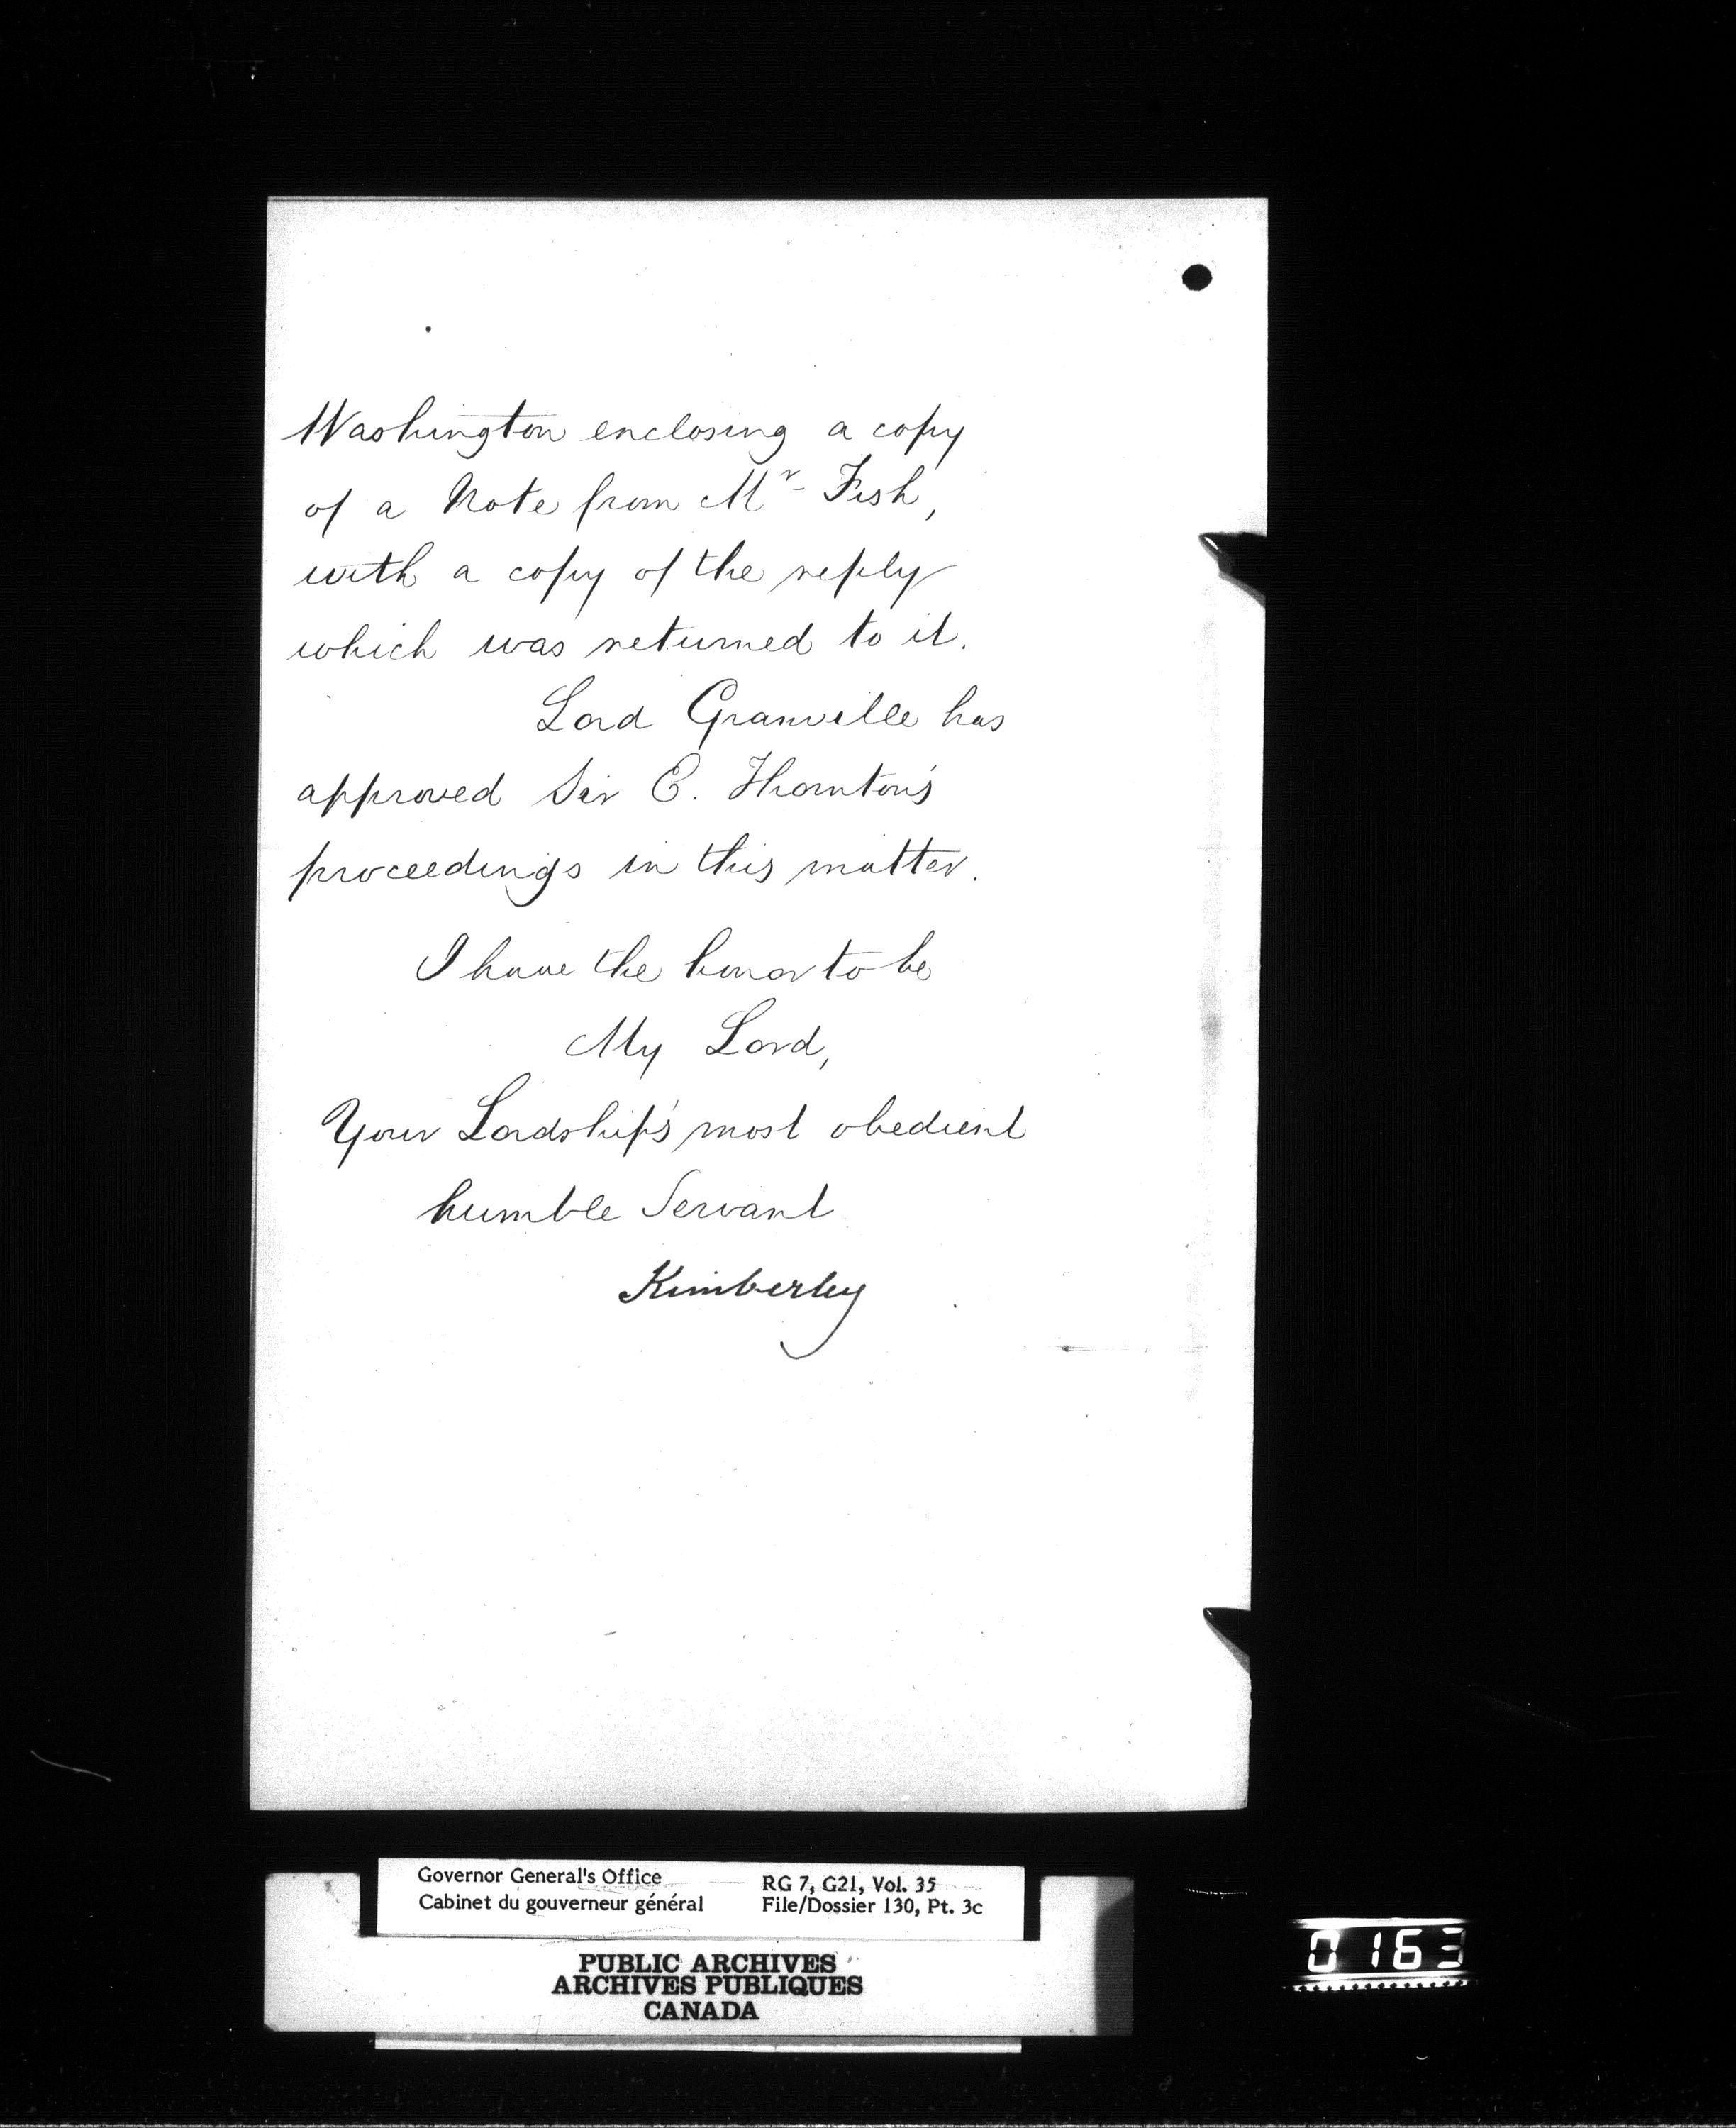 Washington enclosing a copy
of a Note from Mr Fish,
with a copy of the reply
which was returned to it.
Lord Granville has
approved Sir E. Thornton's
proceedings in this matter.
I have the honor to be
My Lord,
Your Lordship's most obedient
humble Servant
Kimberley
Governor General's Office
Cabinet du gouverneur général
RG 7, G21, Vol. 35
File/Dossier 130, Pt. 3c
PUBLIC ARCHIVES
ARCHIVES PUBLIQUES
CANADA
0163